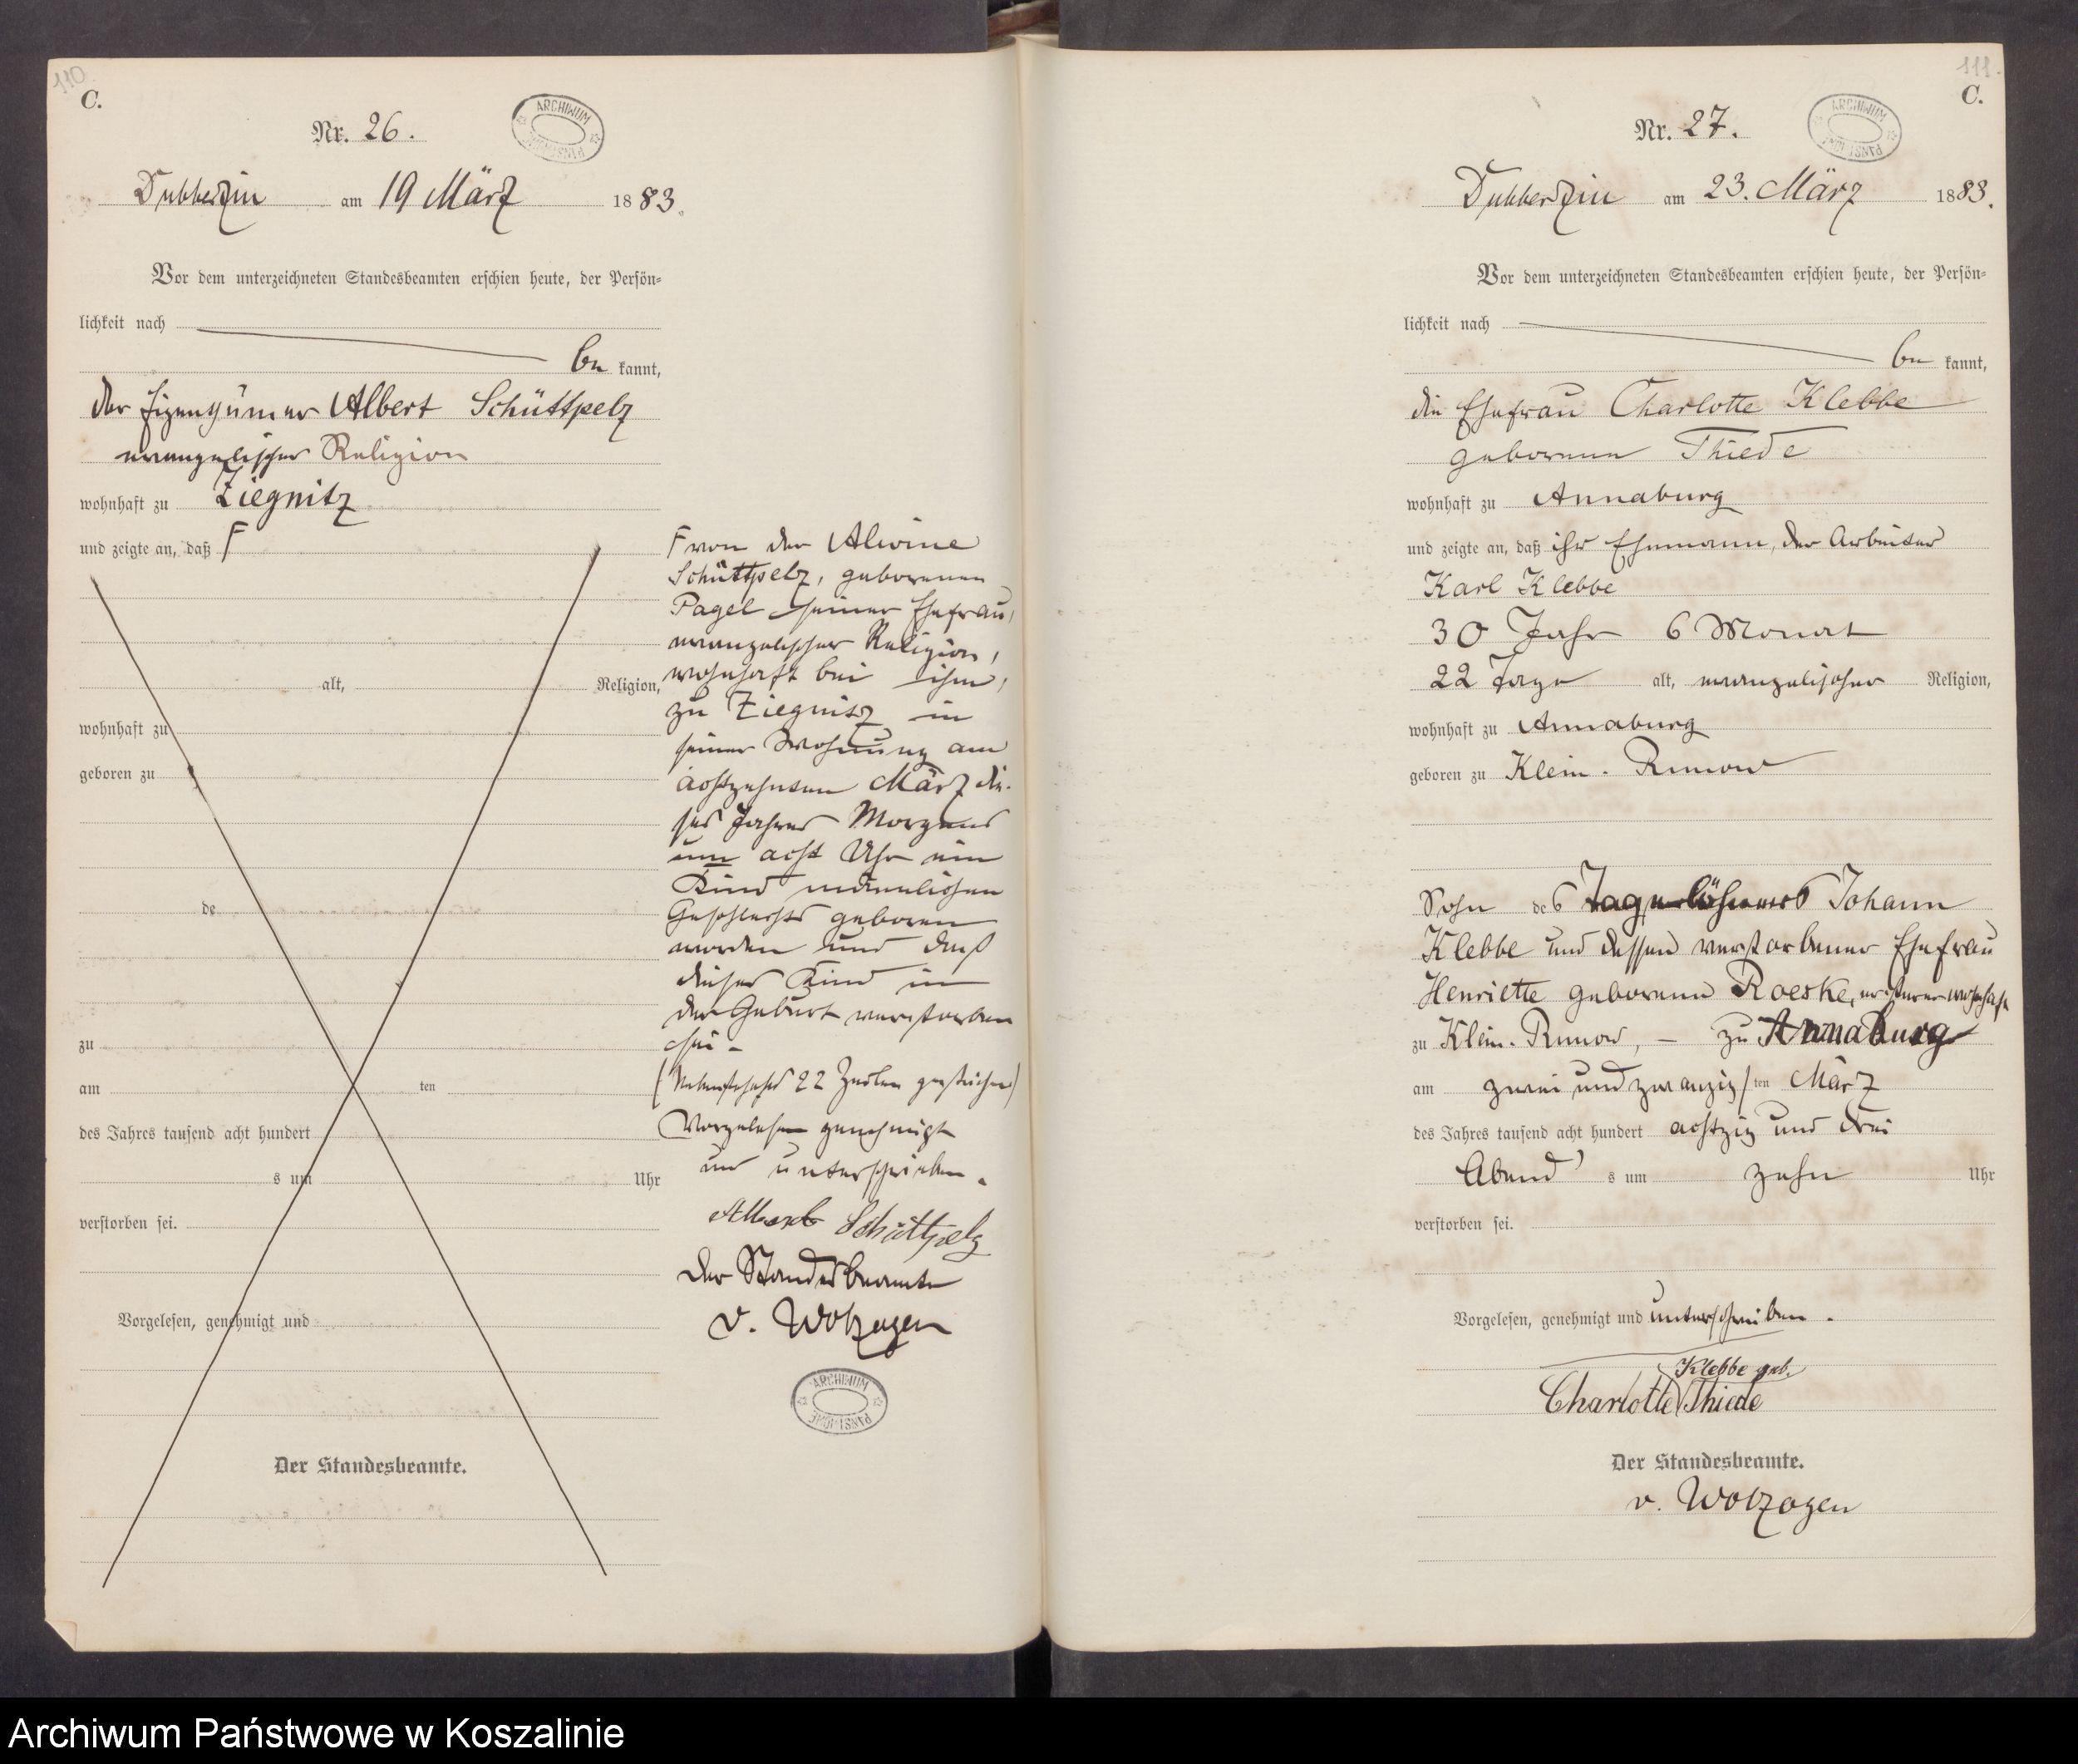 110
C.
Nr. 26.
ARCHIWUM PAŃSTWOWE
Dubberzin am 19 März 1883.
Vor dem unterzeichneten Standesbeamten erschien heute, der Persön-
lichkeit nach
be kannt,
der Eigenthümer Albert Schüttpelz
evangelischer Religion
wohnhaft zu Ziegnitz
und zeigte an, daß F
alt, Religion,
wohnhaft zu
geboren zu
de
zu
am ten
des Jahres tausend acht hundert
s um Uhr
verstorben sei.
Vorgelesen, genehmigt und
Der Standesbeamte.
F von der Alwine
Schüttpelz, geborenen
Pagel seiner Ehefrau,
evangelischer Religion,
wohnhaft bei ihm,
zu Ziegnitz in
seiner Wohnung am
achtzehnten März die-
ses Jahres Morgens
um acht Uhr ein
Kind männlichen
Geschlechts geboren
worden und daß
dieses Kind in
der Geburt verstorben
sei –
(Nebenstehend 22 Zeilen gestrichen)
Vorgelesen genehmigt
und unterschrieben.
Albert Schüttpelz
Der Standesbeamte
v. Wolzogen
ARCHIWUM PAŃSTWOWE
111.
C.
Nr. 27.
ARCHIWUM PAŃSTWOWE
Dubberzin am 23. März 1883.
Vor dem unterzeichneten Standesbeamten erschien heute, der Persön-
lichkeit nach
be kannt,
die Ehefrau Charlotte Klebbe
geborene Thiede
wohnhaft zu Annaburg
und zeigte an, daß ihr Ehemann, der Arbeiter
Karl Klebbe
30 Jahr 6 Monat
22 Tage alt, evangelischer Religion,
wohnhaft zu Annaburg
geboren zu Klein-Runow
Sohn des Tagelöhners Johann
Klebbe und dessen verstorbener Ehefrau
Henriette geborene Roeske, ersterer wohnhaft
zu Klein-Runow, – zu Annaburg
am zwei und zwanzig ten März
des Jahres tausend acht hundert achtzig und drei
Abend s um zehn Uhr
verstorben sei.
Vorgelesen, genehmigt und unterschrieben.
Klebbe geb.
Charlotte Thiede
Der Standesbeamte.
v. Wolzogen
Archiwum Państwowe w Koszalinie